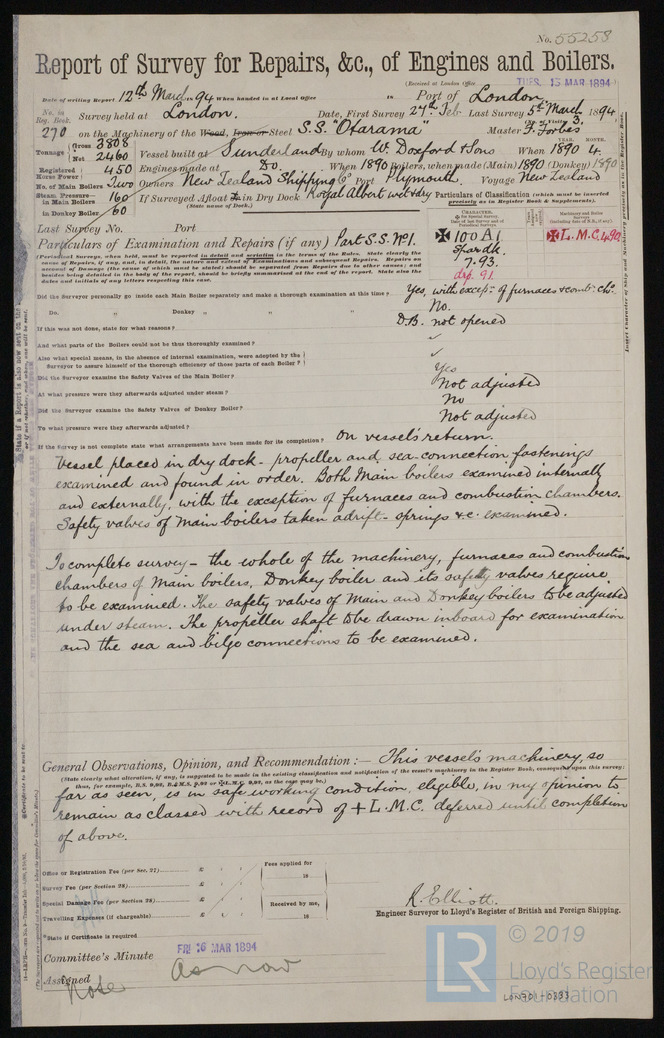 No. 55258
Report of Survey for Repairs, &c., of Engines and Boilers.
(Received at London Office TUES. 13 MAR 1894)
Date of writing Report 12th March 1894 When handed in at Local Office 18 Port of London
No. in Reg. Book. 270
Survey held at London. Date, First Survey 27th Feb Last Survey 5th March 1894
(No. of Visits 3.)
on the Machinery of the Wood, Iron or Steel S.S. "Otarama" Master F. Forbes
Tonnage Gross 3808 Net 2460
Vessel built at Sunderland By whom W. Doxford & Sons When 1890 4.
YEAR. MONTH.
Registered Horse Power 450
Engines made at Do. When 1890 Boilers, when made (Main) 1890 (Donkey) 1890
No. of Main Boilers Two
Owners New Zealand Shipping Co Port Plymouth Voyage New Zealand
Steam Pressure— in Main Boilers 160
in Donkey Boiler 60
If Surveyed Afloat & in Dry Dock Royal Albert wet & dry
(State name of Dock.)
Particulars of Classification (which must be inserted precisely as in Register Book & Supplements).
Last Survey No. Port
Particulars of Examination and Repairs (if any) Part S.S. No 1.
CHARACTER.
100A1
Spar dk
7.93.
drp. 91.
Machinery and Boiler Surveys
L.M.C. 4,90
Did the Surveyor personally go inside each Main Boiler separately and make a thorough examination at this time? Yes, with excepn. of furnaces & comb: chs.
Do. " Donkey " " " No.
If this was not done, state for what reasons? D.B. not opened
And what parts of the Boilers could not be thoroughly examined?
Also what special means, in the absence of internal examination, were adopted by the Surveyor to assure himself of the thorough efficiency of those parts of each Boiler?
Did the Surveyor examine the Safety Valves of the Main Boiler? Yes
At what pressure were they afterwards adjusted under steam? Not adjusted
Did the Surveyor examine the Safety Valves of Donkey Boiler? No
To what pressure were they afterwards adjusted? Not adjusted
If the Survey is not complete state what arrangements have been made for its completion? On vessel's return.
Vessel placed in dry dock - propeller and sea-connection fastenings
examined and found in order. Both Main boilers examined internally
and externally, with the exception of furnaces and combustion chambers.
Safety valves of Main boilers taken adrift - springs &c. examined.
To complete survey - the whole of the machinery, furnaces and combustion
chambers of Main boilers, Donkey boiler and its safety valves require
to be examined. The safety valves of Main and Donkey boilers to be adjusted
under steam. The propeller shaft to be drawn inboard for examination
and the sea and bilge connections to be examined.
General Observations, Opinion, and Recommendation :— This vessel's machinery, so
(State clearly what alteration, if any, is suggested to be made in the existing classification and notification of the vessel's machinery in the Register Book, consequent upon this survey:
far as seen, is in safe working condition, eligible, in my opinion to
remain as classed with record of + L.M.C. deferred until completion
of above.
Office or Registration Fee (per Sec. 27) £
Survey Fee (per Section 28) £
Special Damage Fee (per Section 28) £
Travelling Expenses (if chargeable) £
Fees applied for 18
Received by me, 18
R. Elliott.
Engineer Surveyor to Lloyd's Register of British and Foreign Shipping.
*State if Certificate is required
Committee's Minute FRI 16 MAR 1894
Assigned As now
LR © 2019
Lloyd's Register
Foundation
LON701-0333